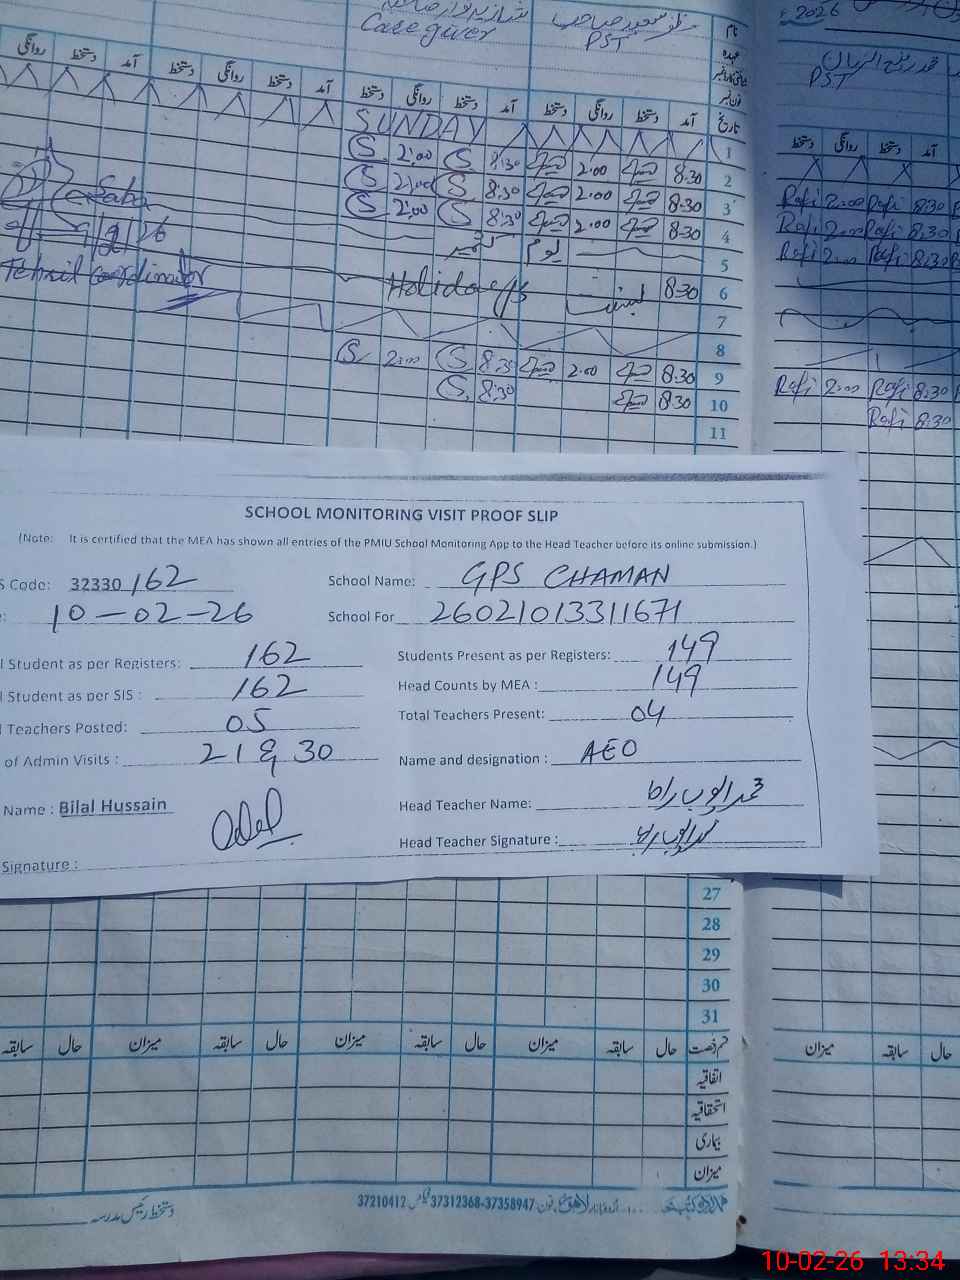 2026
PST
Caregiver
PST
نام
عہدہ
فون نمبر
تاریخ آمد دستخط روانگی دستخط آمد دستخط روانگی دستخط آمد دستخط روانگی دستخط آمد دستخط روانگی
آمد دستخط روانگی دستخط
1 SUNDAY
2 8:30 2:00 8:30 S 2:00 S
3 8:30 2:00 8:30 S 2:00 S
4 8:30 2:00 8:30 S 2:00 S
5 یوم کشمیر
6 8:30 Holidays
7
8
9 8:30 2:00 8:30 S 2:00 S
10 8:30 8:30 S
11
Rafi 2:00 Rafi 8:30
Rafi 2:00 Rafi 8:30
Rafi 2:00 Rafi 8:30
Rafi 2:00 Rafi 8:30
Rafi 8:30
Saba
9/2/26
Tehsil coordinator
SCHOOL MONITORING VISIT PROOF SLIP
(Note: It is certified that the MEA has shown all entries of the PMIU School Monitoring App to the Head Teacher before its online submission.)
S Code: 32330162 School Name: GPS CHAMAN
e: 10-02-26 School For 26021013311671
l Student as per Registers: 162 Students Present as per Registers: 149
l Student as per SIS : 162 Head Counts by MEA : 149
l Teachers Posted: 05 Total Teachers Present: 04
of Admin Visits : 21 & 30 Name and designation : AEO
Name : Bilal Hussain Head Teacher Name:
Signature : Head Teacher Signature :
27
28
29
30
31
قسم رخصت حال سابقہ میزان حال سابقہ میزان حال سابقہ میزان حال سابقہ
حال سابقہ میزان
اتفاقیہ
استحقاقیہ
بیماری
میزان
اردو بازار لاہور فون 37312368-37358947 فیکس 37210412
دستخط رئیس مدرسہ
10-02-26 13:34